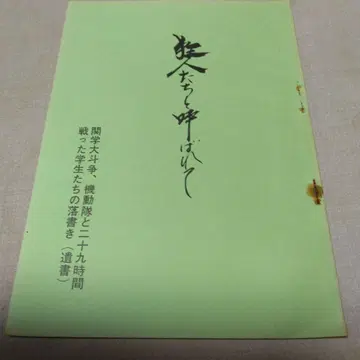 狂人たちと呼ばれて
関学大斗争、機動隊と二十九時間
戦った学生たちの落書き（遺書）